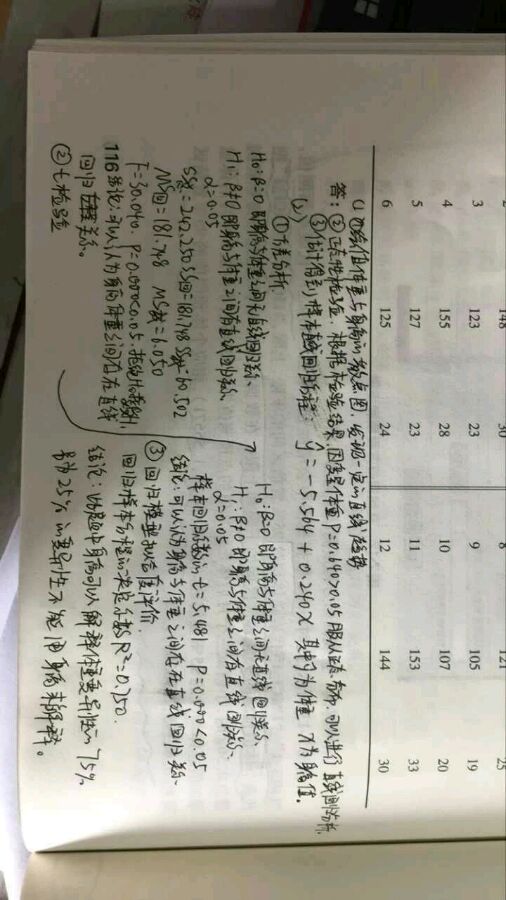 2 148 30 8 121 25
3 123 23 9 105 19
4 155 28 10 107 20
5 127 23 11 153 33
6 125 24 12 144 30
(1) 绘制体重与身高的散点图,发现一定的直线趋势
答:② 正态性检验,根据检验结果,因变量体重P=0.640>0.05服从正态分布,可以进行直线回归分析.
③ 估计得到样本直线回归方程: ŷ=-5.564+0.240x 其中y为体重 x为身高值.
(2)
① 方差分析
H₀:β=0 即身高与体重之间无直线回归关系、
H₁:β≠0 即身高与体重之间有直线回归关系、
α=0.05
SS总=242.250 SS回=181.748 SS残=60.502
MS回=181.748 MS残=6.050
F=30.040. P=0.000<0.05 拒绝H₀
结论:可以认为身高体重之间存在直线
回归关系。
② t检验
H₀:β=0 即身高与体重之间无直线回归关系、
H₁:β≠0 即身高与体重之间有直线回归关系、
α=0.05
样本回归系数的 t=5.481 P=0.000<0.05
结论:可以认为身高与体重之间存在直线回归关系、
③ 回归模型拟合度评价
回归样本方程的决定系数R²=0.750.
结论:该题中身高可以解释体重变异性的75%
另外25%的变异性不能由身高来解释。
116